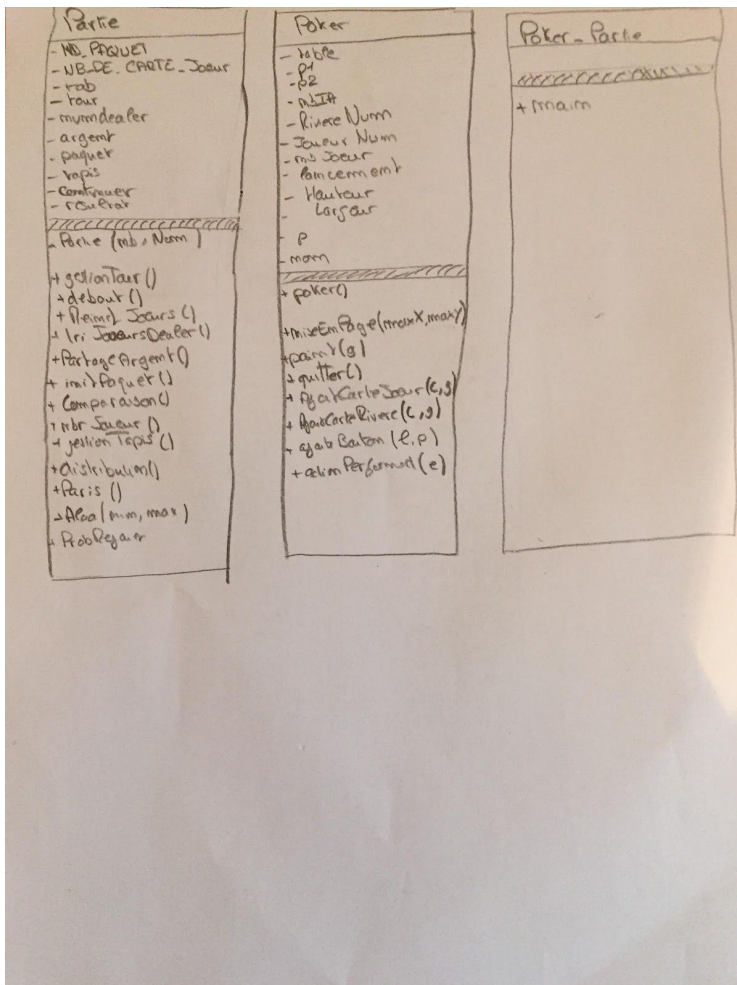 Partie
- NB_PAQUET
- NB_DE_CARTE_Joeur
- tab
- tour
- numdealer
- argent
- paquet
- tapis
- Continuer
- resultat
- Partie (nb, Nom)
+ gestionTour()
+ debout()
+ Reinit Joeurs ()
+ tri JoeursDealer()
+ PartageArgent()
+ initPaquet()
+ Comparaison()
+ nbr Joueur ()
+ gestion Tapis ()
+ distribution()
+ Paris ()
+ Alea (min, max)
Poker
- table
- p1
- p2
- nbIA
- Riviere Num
- Joueur Num
- nb Joeur
- lancement
- Hauteur
- Largeur
- p
- nom
+ poker()
+ miseEnPage(maxX, maxY)
+ paint(g)
+ quitter()
+ AjoutCarteJoeur(c,g)
+ AjoutCarteRiviere(c,g)
+ ajoutBouton (l,p)
+ actionPerformed(e)
Poker_Partie
+ main